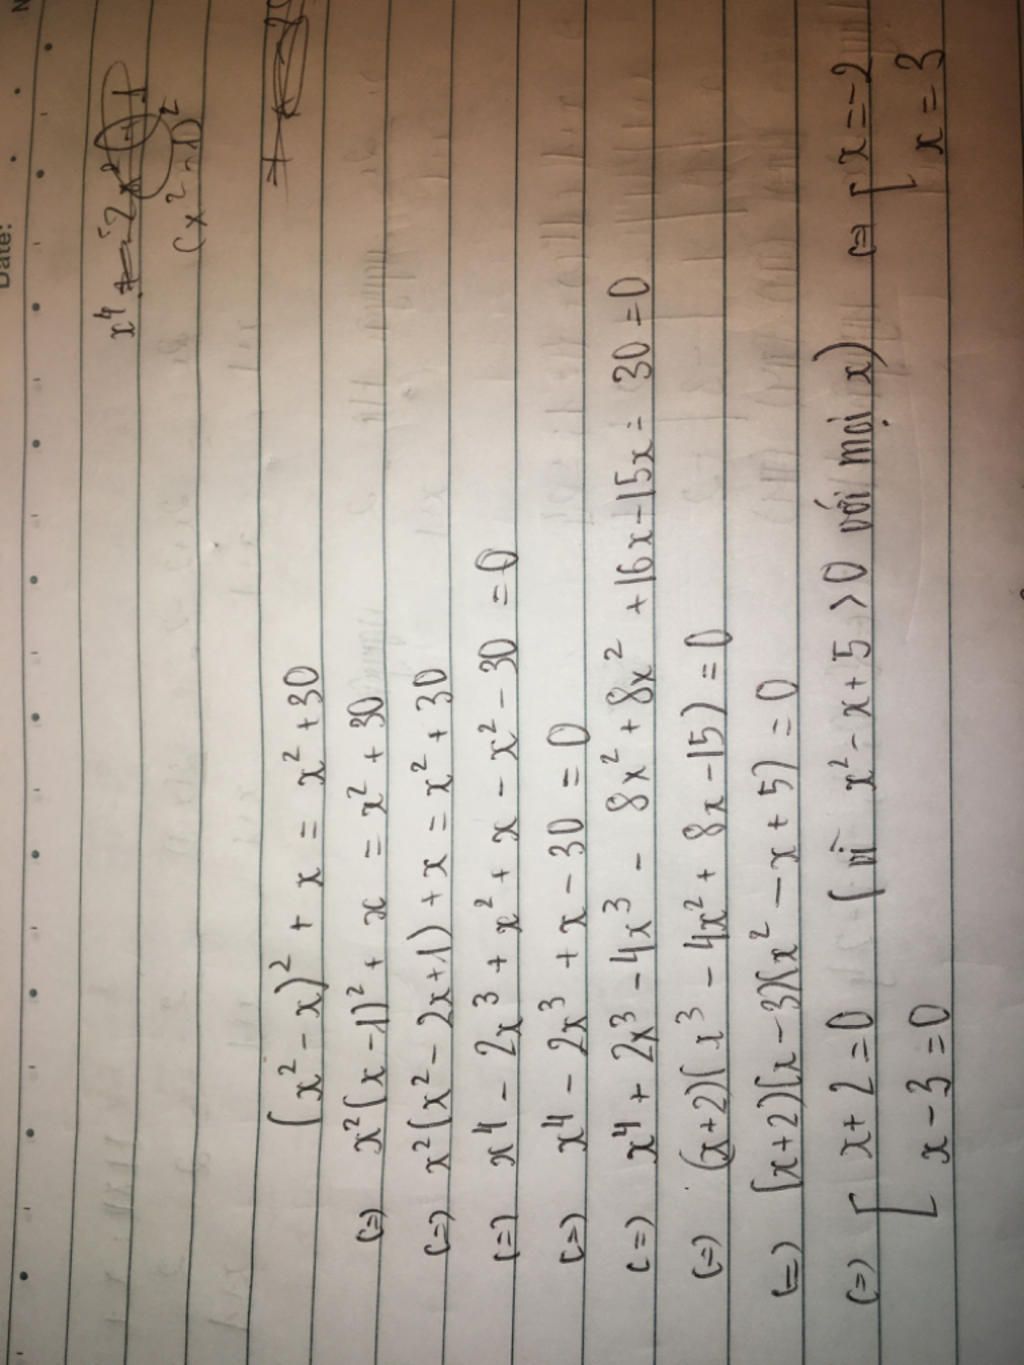 Date:
x⁴
(x² + 1)²
(x² - x)² + x = x² + 30
(=) x²(x - 1)² + x = x² + 30
(=) x²(x² - 2x + 1) + x = x² + 30
(=) x⁴ - 2x³ + x² + x - x² - 30 = 0
(=) x⁴ - 2x³ + x - 30 = 0
(=) x⁴ + 2x³ - 4x³ - 8x² + 8x² + 16x - 15x - 30 = 0
(=) (x+2)(x³ - 4x² + 8x - 15) = 0
(=) (x+2)(x - 3)(x² - x + 5) = 0
(=) [ x + 2 = 0 (vì x² - x + 5 > 0 với mọi x) (=) [ x = -2
x - 3 = 0 x = 3